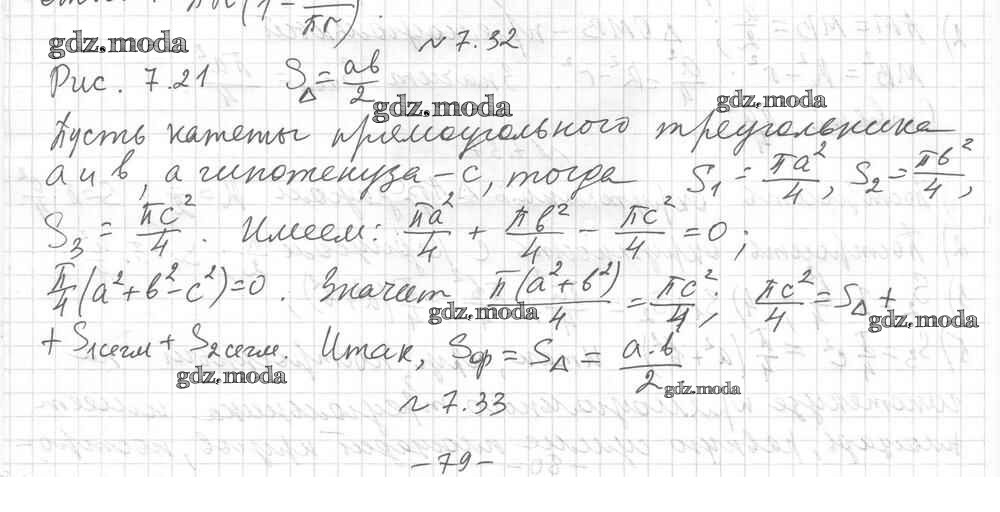 πr(1 − πr)
gdz.moda
№ 7.32
Рис. 7.21 S△ = ab/2
gdz.moda
gdz.moda
Пусть катеты прямоугольного треугольника
a и b, а гипотенуза – c, тогда S₁ = πa²/4, S₂ = πb²/4,
S₃ = πc²/4. Имеем: πa²/4 + πb²/4 − πc²/4 = 0;
π/4(a²+b²−c²)=0. Значит π(a²+b²)/4 = πc²/4; πc²/4 = S△ +
gdz.moda
gdz.moda
+ S₁сегм + S₂сегм. Итак, Sфр = S△ = a·b/2
gdz.moda
gdz.moda
№ 7.33
– 79 –